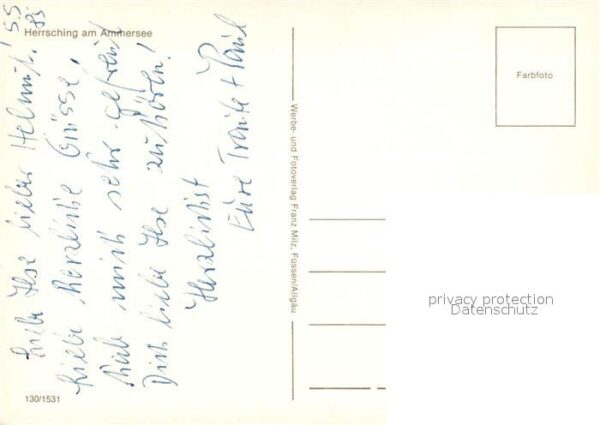 Herrsching am Ammersee
5.5.83
Liebe Ilse lieber Helmut!
Liebe herzliche Grüsse,
hab mich sehr gefreut
Dich liebe Ilse zu hören!
Herzlichst
Eure Traute + Paul
130/1531
Werbe- und Fotoverlag Franz Milz, Füssen/Allgäu
Farbfoto
privacy protection
Datenschutz